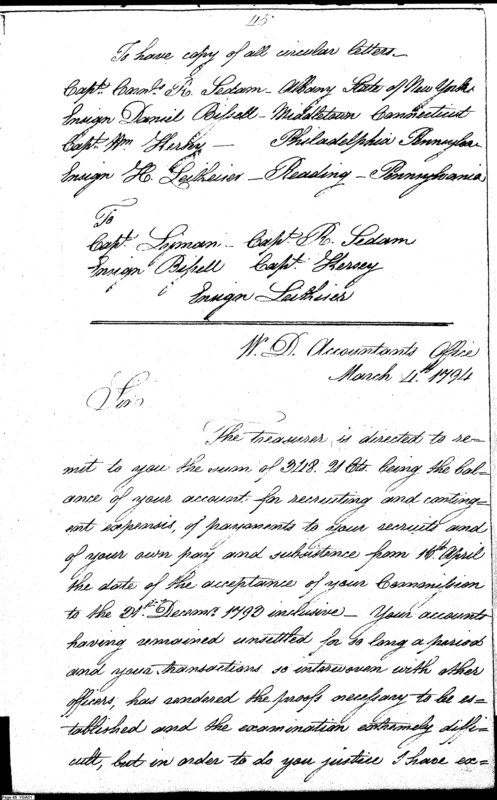 45
To have copy of all circular letters
Capt. Corns. R. Sedam - Albany State of New York
Ensign Daniel Bissell - Middletown Connecticut
Capt. Wm Kersey - Philadelphia
Ensign H. - Reading - Pennsylvania
To
Capt. Lyman - Capt. R. Sedam
Ensign Bissell Capt. Kersey
Ensign
W. D. Accountants Office
March 4th 1794
Sir
The treasurer is directed to re=
mit to you the sum of 21 Cts. being the bal=
ance of your account for recruiting and conting=
ent expenses, of payments to your recruits and
of your own pay and subsistence from 16th April
the date of the acceptance of your Commission
to the 31st Decemr. 1792 inclusive - Your accounts
having remained unsettled for so long a period
and your transactions so interwoven with other
officers, has rendered the proofs necessary to be es=
tablished and the examination extremely diffi=
cult, but in order to do you justice I have ex=